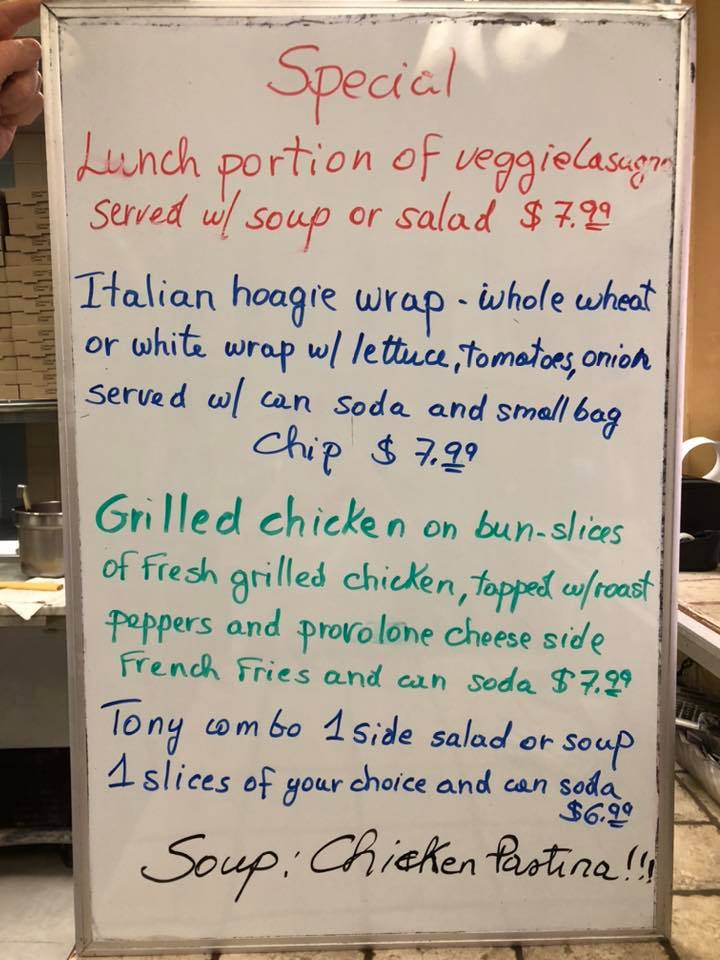 Special
Lunch portion of veggie Lasagna
served w/ soup or salad $7.99
Italian hoagie wrap - whole wheat
or white wrap w/ lettuce, tomatoes, onion
served w/ can soda and small bag
Chip $7.99
Grilled chicken on bun-slices
of Fresh grilled chicken, topped w/ roast
peppers and provolone cheese side
French Fries and can soda $7.99
Tony combo 1 side salad or soup
1 slices of your choice and can soda
$6.99
Soup: Chicken Pastina!!!